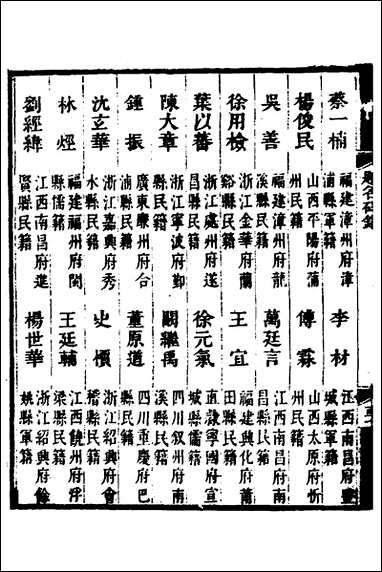 題名碑錄
蔡一楠 福建漳州府漳浦縣軍籍 李材 江西南昌府豐城縣軍籍
楊俊民 山西平陽府蒲州民籍 傅霖 山西太原府忻州民籍
吳善 福建漳州府龍溪縣民籍 萬廷言 江西南昌府南昌縣民籍
徐用檢 浙江金華府蘭谿縣民籍 王宜 福建興化府莆田縣民籍
葉以蕃 浙江處州府遂 徐元氣 直隷寧國府宣城縣儒籍
陳大章 浙江寧波府鄞縣民籍 闕繼禹 四川敘州府南溪縣民籍
鍾振 廣東廉州府合浦縣民籍 董原道 四川重慶府巴縣民籍
沈玄華 浙江嘉興府秀水縣民籍 史檟 浙江紹興府會稽縣民籍
林烴 福建福州府閩縣儒籍 王廷輔 江西饒州府浮梁縣民籍
劉經緯 江西南昌府進賢縣民籍 楊世華 浙江紹興府餘姚縣軍籍